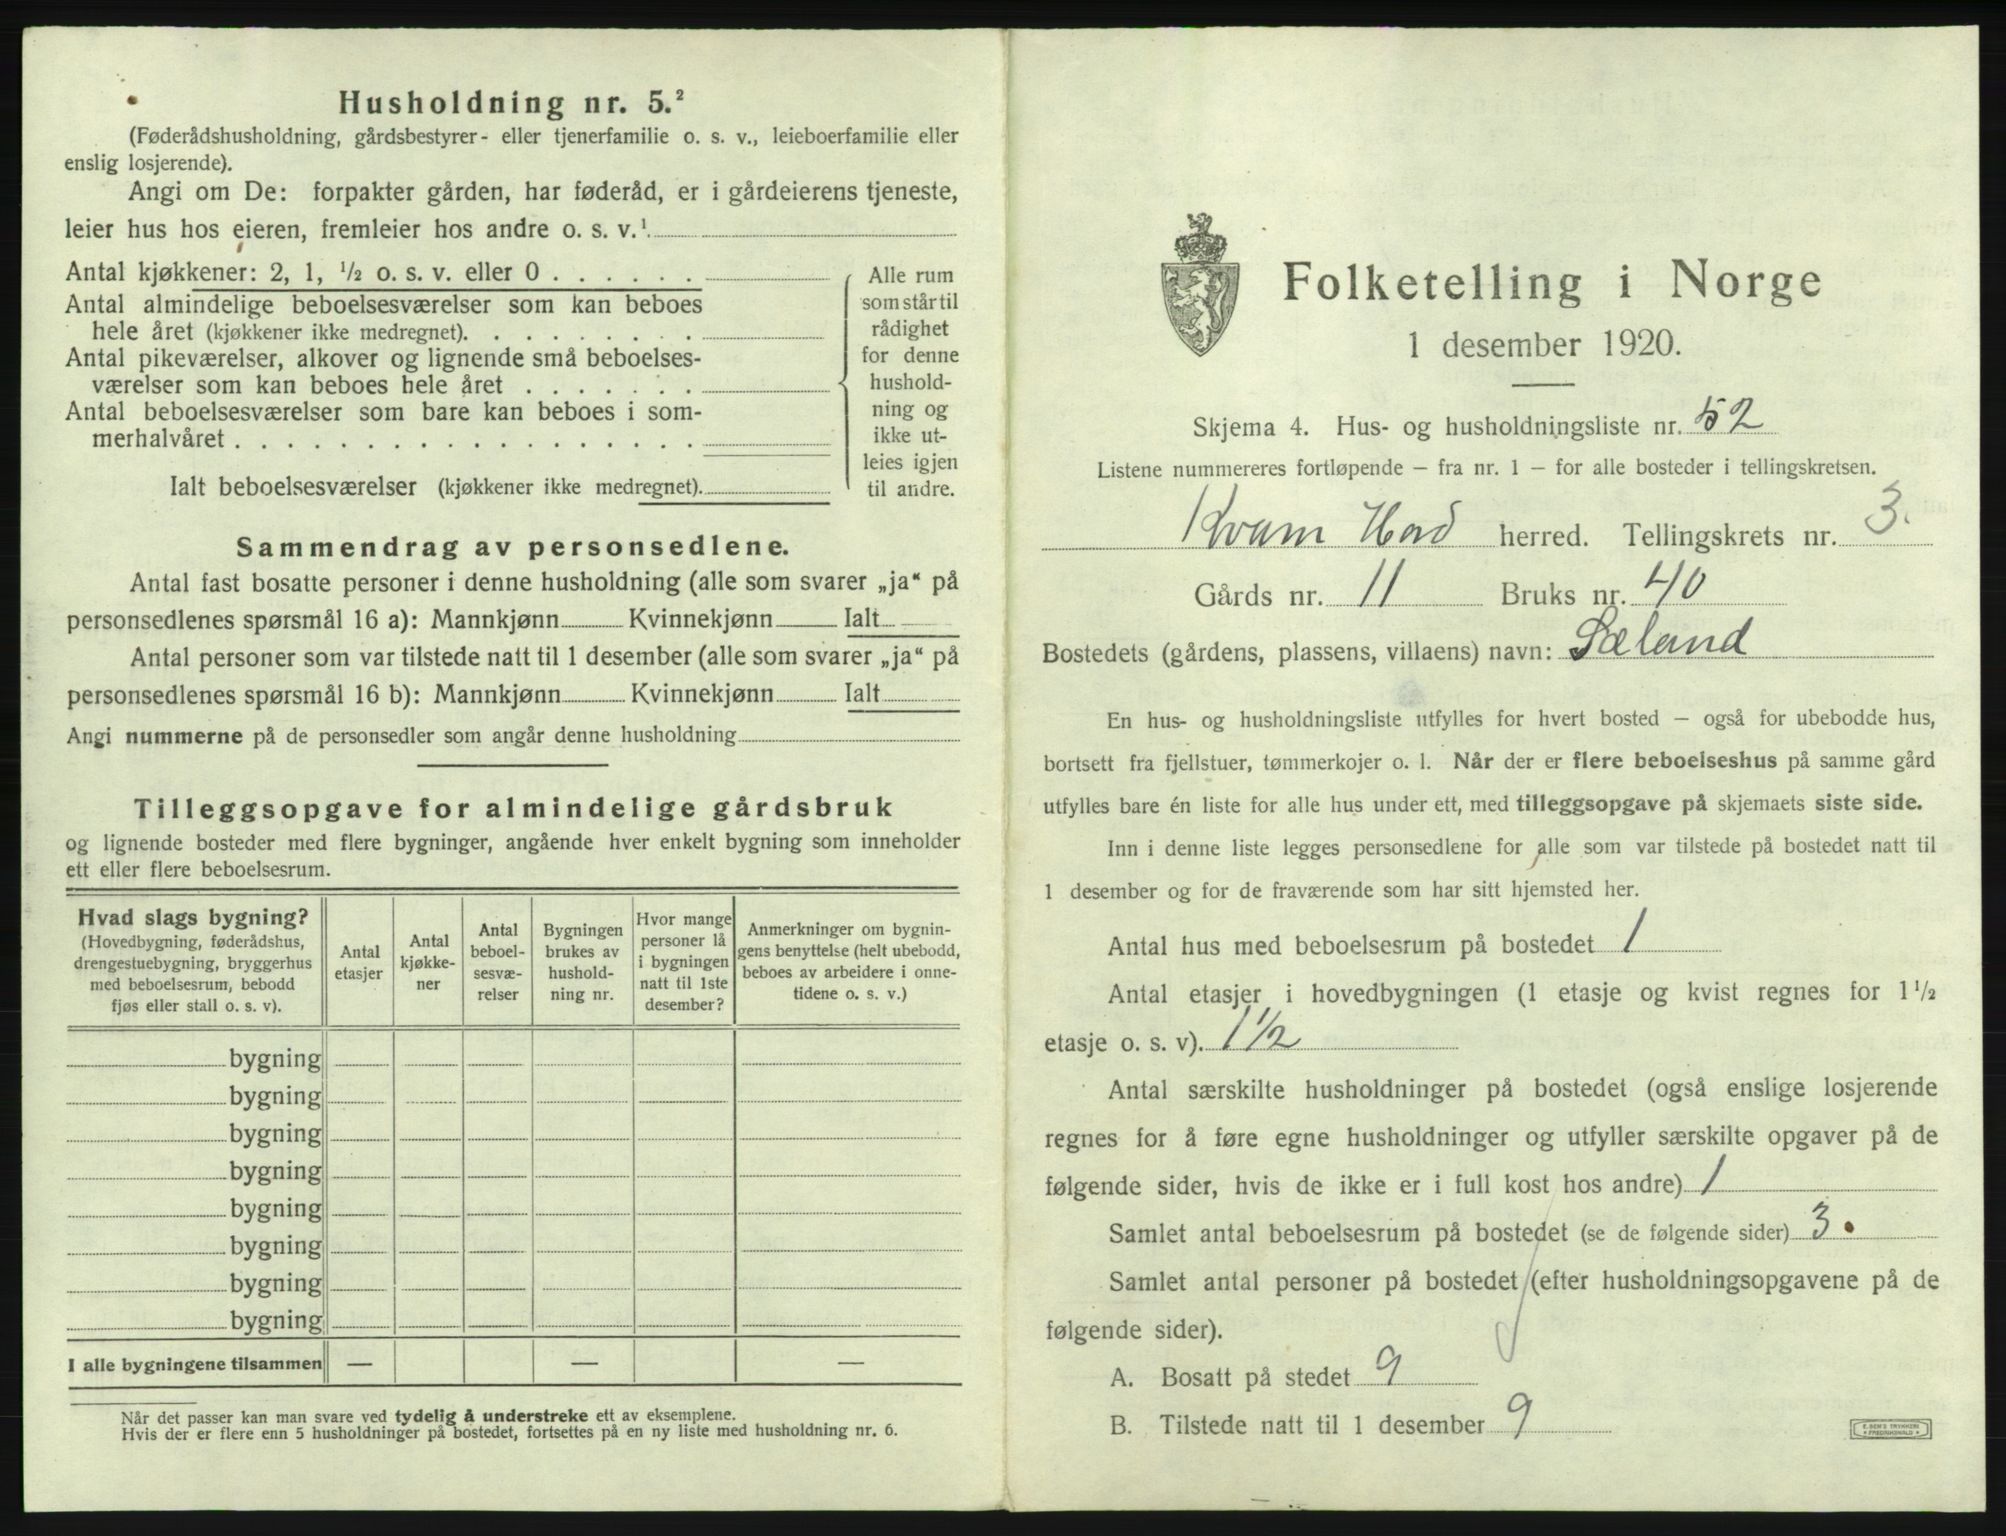 Husholdning nr. 5.²
(Føderådshusholdning, gårdsbestyrer- eller tjenerfamilie o. s. v., leieboerfamilie eller
enslig losjerende).
Angi om De: forpakter gården, har føderåd, er i gårdeierens tjeneste,
leier hus hos eieren, fremleier hos andre o. s. v.¹
Antal kjøkkener: 2, 1, ½ o. s. v. eller 0 . . . . . .
Antal almindelige beboelsesværelser som kan beboes
hele året (kjøkkener ikke medregnet). . . . . . . . .
Antal pikeværelser, alkover og lignende små beboelses-
værelser som kan beboes hele året . . . . . . .
Antal beboelsesværelser som bare kan beboes i som-
merhalvåret . . . . . . . . . . . . . . . . . .
Ialt beboelsesværelser (kjøkkener ikke medregnet).
Alle rum
som står til
rådighet
for denne
hushold-
ning og
ikke ut-
leies igjen
til andre.
Sammendrag av personsedlene.
Antal fast bosatte personer i denne husholdning (alle som svarer „ja“ på
personsedlenes spørsmål 16 a): Mannkjønn Kvinnekjønn Ialt
Antal personer som var tilstede natt til 1 desember (alle som svarer „ja“ på
personsedlenes spørsmål 16 b): Mannkjønn Kvinnekjønn Ialt
Angi nummerne på de personsedler som angår denne husholdning
Tilleggsopgave for almindelige gårdsbruk
og lignende bosteder med flere bygninger, angående hver enkelt bygning som inneholder
ett eller flere beboelsesrum.
Hvad slags bygning?
(Hovedbygning, føderådshus,
drengestuebygning, bryggerhus
med beboelsesrum, bebodd
fjøs eller stall o. s. v).
Antal
etasjer
Antal
kjøkke-
ner
Antal
beboel-
sesvæ-
relser
Bygningen
brukes av
hushold-
ning nr.
Hvor mange
personer lå
i bygningen
natt til 1ste
desember?
Anmerkninger om bygnin-
gens benyttelse (helt ubebodd,
beboes av arbeidere i onne-
tidene o. s. v.)
bygning
bygning
bygning
bygning
bygning
bygning
bygning
bygning
I alle bygningene tilsammen — — —
Når det passer kan man svare ved tydelig å understreke ett av eksemplene.
Hvis der er flere enn 5 husholdninger på bostedet, fortsettes på en ny liste med husholdning nr. 6.
Folketelling i Norge
1 desember 1920.
Skjema 4. Hus- og husholdningsliste nr. 52
Listene nummereres fortløpende – fra nr. 1 – for alle bosteder i tellingskretsen.
Kvam Hord herred. Tellingskrets nr. 3.
Gårds nr. 11 Bruks nr. 40
Bostedets (gårdens, plassens, villaens) navn: Sæland
En hus- og husholdningsliste utfylles for hvert bosted – også for ubebodde hus,
bortsett fra fjellstuer, tømmerkojer o. l. Når der er flere beboelseshus på samme gård
utfylles bare én liste for alle hus under ett, med tilleggsopgave på skjemaets siste side.
Inn i denne liste legges personsedlene for alle som var tilstede på bostedet natt til
1 desember og for de fraværende som har sitt hjemsted her.
Antal hus med beboelsesrum på bostedet 1
Antal etasjer i hovedbygningen (1 etasje og kvist regnes for 1½
etasje o. s. v). 1½
Antal særskilte husholdninger på bostedet (også enslige losjerende
regnes for å føre egne husholdninger og utfyller særskilte opgaver på de
følgende sider, hvis de ikke er i full kost hos andre) 1
Samlet antal beboelsesrum på bostedet (se de følgende sider) 3.
Samlet antal personer på bostedet (efter husholdningsopgavene på de
følgende sider).
A. Bosatt på stedet 9
B. Tilstede natt til 1 desember 9